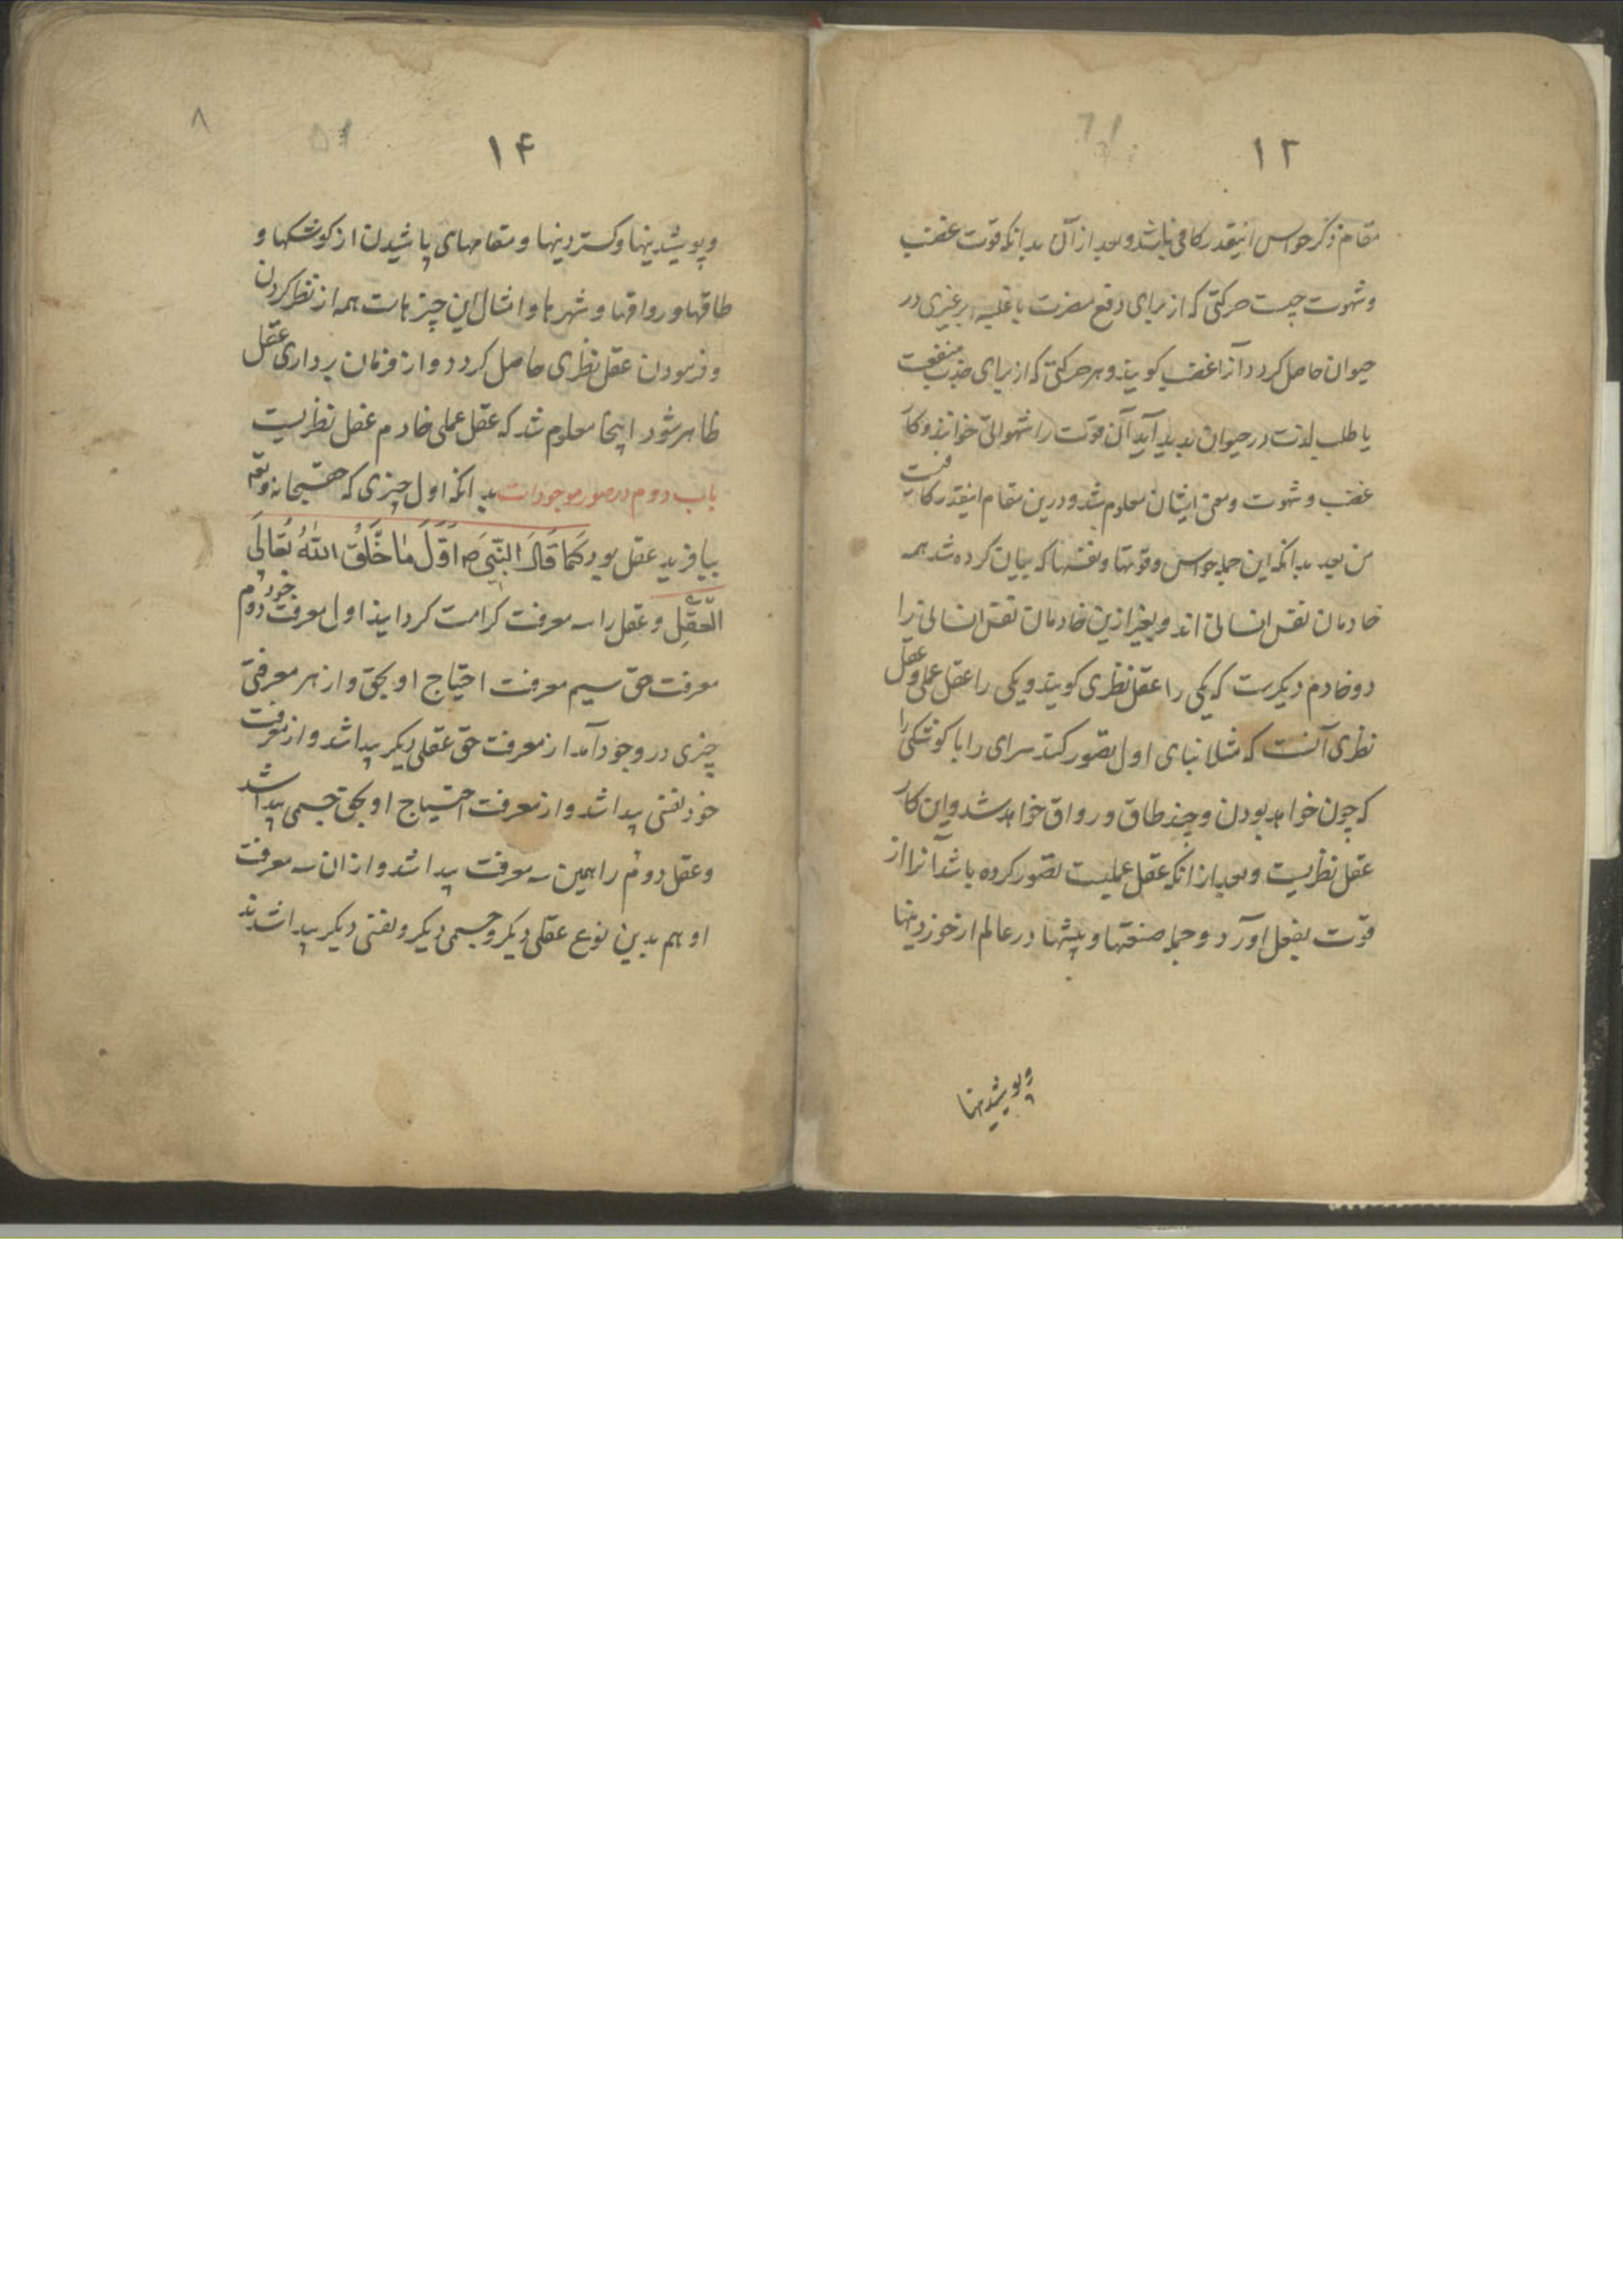 ۱۳
مقام ذکر حواس اینقدر کافی باشد و بعد از آن بدانکه قوت غضب
و شهوت چیست حرکتی که از برای دفع مضرت یا غلبه بر غیری در
حیوان حاصل کردد آنرا غضب کویند و هر حرکتی که از برای جذب منفعت
یا طلب لذت در حیوان بدید آید آن قوت را شهوانی خوانند و کار
غضب و شهوت و معنی ایشان معلوم شد و درین مقام اینقدر کافیست
من بعد بدانکه این جمله حواس و قوتها و نفسها که بیان کرده شد همه
خادمان نفس انسانی اند و بغیر ازین خادمان نفس انسانی را
دو خادم دیکرست که یکی را عقل نظری کویند و یکی را عقل عملی و عقل
نظری آنست که مثلا بنای اول تصور کند سرای را با کوشکی را
که چون خواهد بودن و چند طاق و رواق خواهد شد و این کار
عقل نظریست و بعد از انکه عقل عملیست تصور کرده باشد آنرا از
قوت بفعل آورد و جمله صنعتها و پیشها در عالم از خوردنیها
و پوشیدنیها
۱۴
۸
و پوشیدینها و کستردینها و مقامهای باشیدن از کوشکها و
طاقها و رواقها و شهرها و امثال این چیزهاست همه از نظر کردن
و فرمودن عقل نظری حاصل کردد و از فرمان برداری عقل
ظاهر شود اینجا معلوم شد که عقل عملی خادم عقل نظریست
باب دوم در صور موجودات بدانکه اول چیزی که حق سبحانه و تعالی
بیافرید عقل بود کَمَا قَالَ النَّبِیّ ص اَوَّلُ مَا خَلَقَ اللهُ تَعَالَی
العَقْل و عقل را سه معرفت کرامت کردانید اول معرفت خود دوم
معرفت حق سیم معرفت احتیاج او بحق و از هر معرفتی
چیزی در وجود آمد از معرفت حق عقلی دیکر پیدا شد و از معرفت
خود نفسی پیدا شد و از معرفت احتیاج او بحق جسمی پیدا شد
و عقل دوم را همین سه معرفت پیدا شد و از ان سه معرفت
او هم بدین نوع عقلی دیکر و جسمی دیکر و نفسی دیکر پیدا شدند